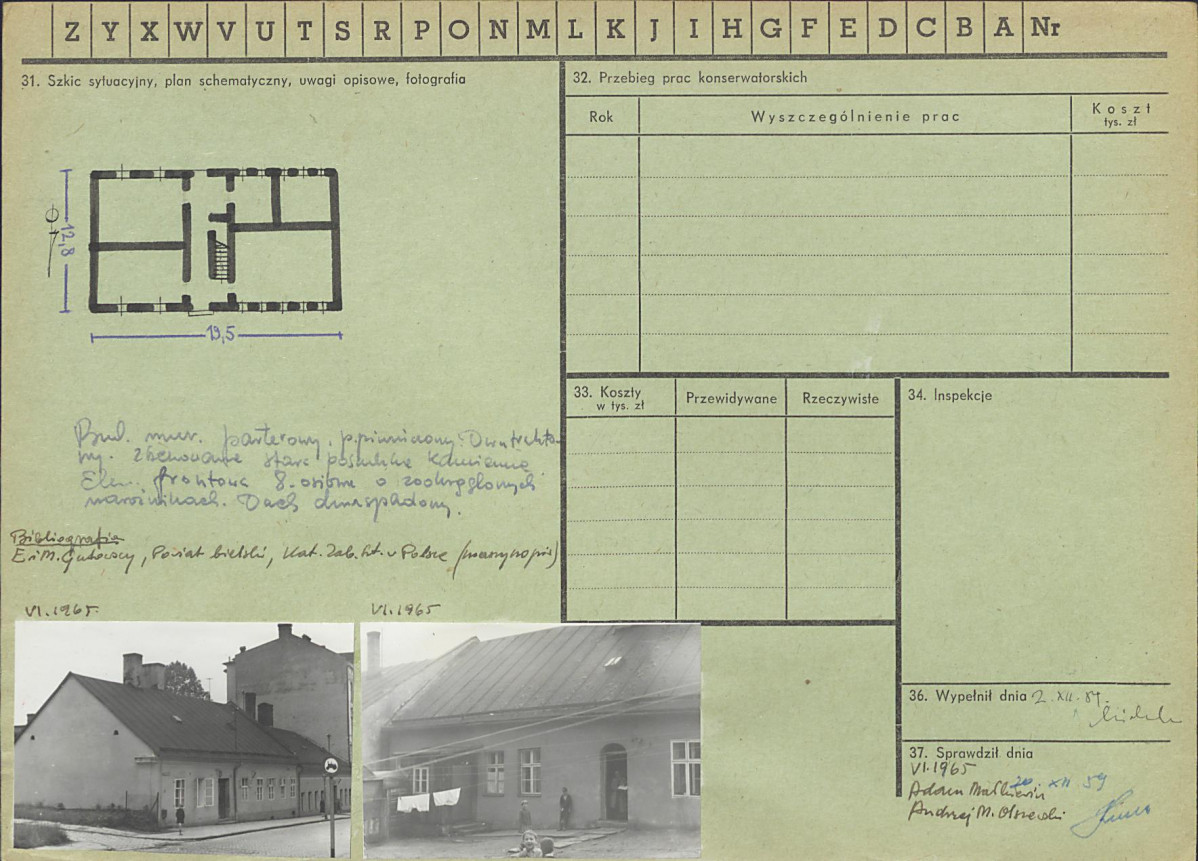 Z Y X W V U T S R P O N M L K J I H G F E D C B A Nr
31. Szkic sytuacyjny, plan schematyczny, uwagi opisowe, fotografia
12,8
19,5
Bud. mur. parterowy. p.piwniczony. Dwutrakto-
wy. Zachowane stare posadzki kamienne
Elew. frontowa 8-osiowa o zaokrąglonych
narożnikach. Dach dwuspadowy.
Bibliografia
E i M. Gutowscy, Powiat bielski, Kat. Zab. Szt. w Polsce (maszynopis)
VI.1965.
VI.1965
32. Przebieg prac konserwatorskich
Rok
Wyszczególnienie prac
Koszt
tys. zł
33. Koszty
w tys. zł
Przewidywane
Rzeczywiste
34. Inspekcje
36. Wypełnił dnia 2. XII. 59.
37. Sprawdził dnia
VI.1965
20. XII 59
Adam
Andrzej M. Olszewski